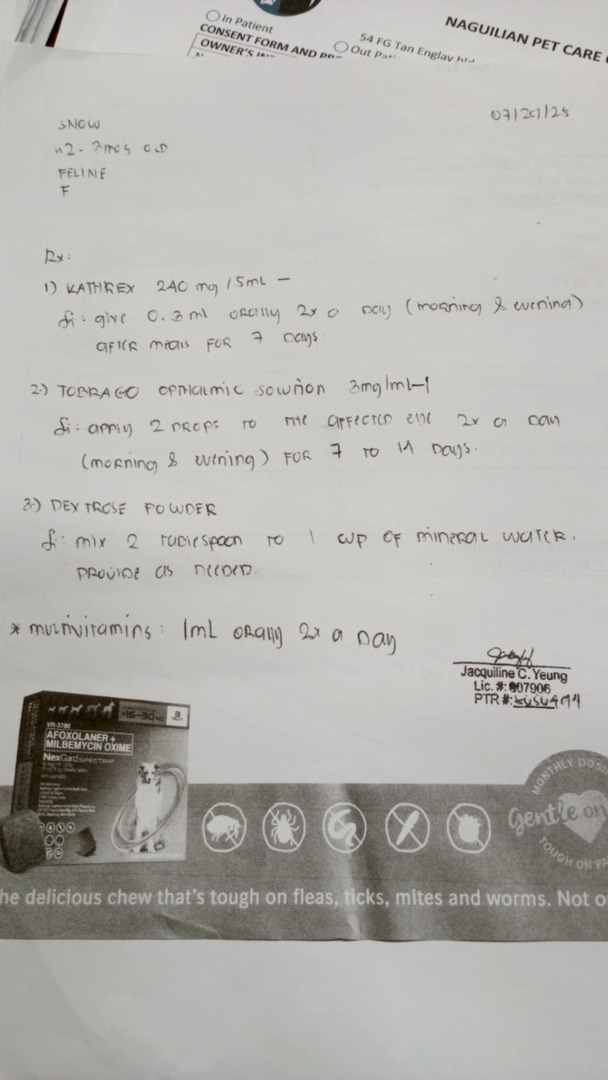 In Patient
54 FG Tan Englay
NAGUILIAN PET CARE
CONSENT FORM AND
Out
OWNER'S
07/29/25
SNOW
n2. 3mos OLD
FELINE
F
Rx:
1) KATHREX 240 mg / 5mL –
Si: give 0.3 ml orally 2x a Day (morning & evening)
after meals FOR 7 Days.
2.) TOBRAGO OPTHALMIC SOLUTION 3mg/ml-1
Si: apply 2 DROPS TO THE AFFECTED EYE 2x a Day
(morning & evening) FOR 7 TO 14 Days.
3.) DEXTROSE POWDER
Si: mix 2 TABLESPOON TO 1 CUP OF MINERAL WATER.
PROVIDE as NEEDED.
* multivitamins: 1mL orally 2x a Day
Jacquiline C. Yeung
Lic. #: 007906
PTR #:
3
VN-3786
AFOXOLANER +
MILBEMYCIN OXIME
NexGard SPECTRA
MONTHLY DOSI
Gentle on
TOUGH ON PA
he delicious chew that's tough on fleas, ticks, mites and worms. Not o